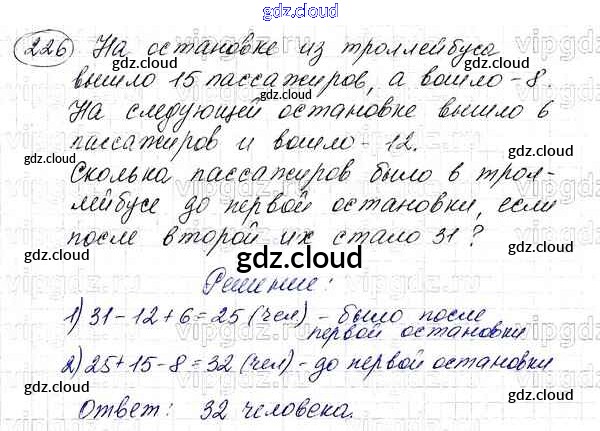 gdz.cloud
226 На остановке из троллейбуса
вышло 15 пассажиров, а вошло - 8.
gdz.cloud
На следующей остановке вышло 6
gdz.cloud
пассажиров и вошло - 12.
gdz.cloud gdz.cloud
Сколька пассажиров было в трол-
лейбусе до первой остановки, если
gdz.cloud gdz.cloud
после второй их стало 31?
gdz.cloud
Решение:
gdz.cloud gdz.cloud
1) 31 - 12 + 6 = 25 (чел) - было после
первой остановки
gdz.cloud
2) 25 + 15 - 8 = 32 (чел) - до первой остановки
gdz.cloud gdz.cloud
Ответ: 32 человека.
gdz.cloud